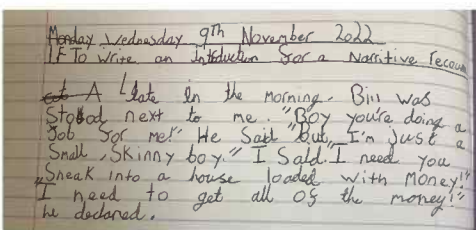 Monday Wednesday 9th November 2022
LF To write an Introduction for a Narritive recoun
A Late in the morning, Bill was
Stood next to me. "Boy you're doing a
Job for me!" He Said "But, I'm just a
Small, Skinny boy." I Said. I need you
"Sneak into a house loaded with Money!"
I need to get all of the money!"
he declared.